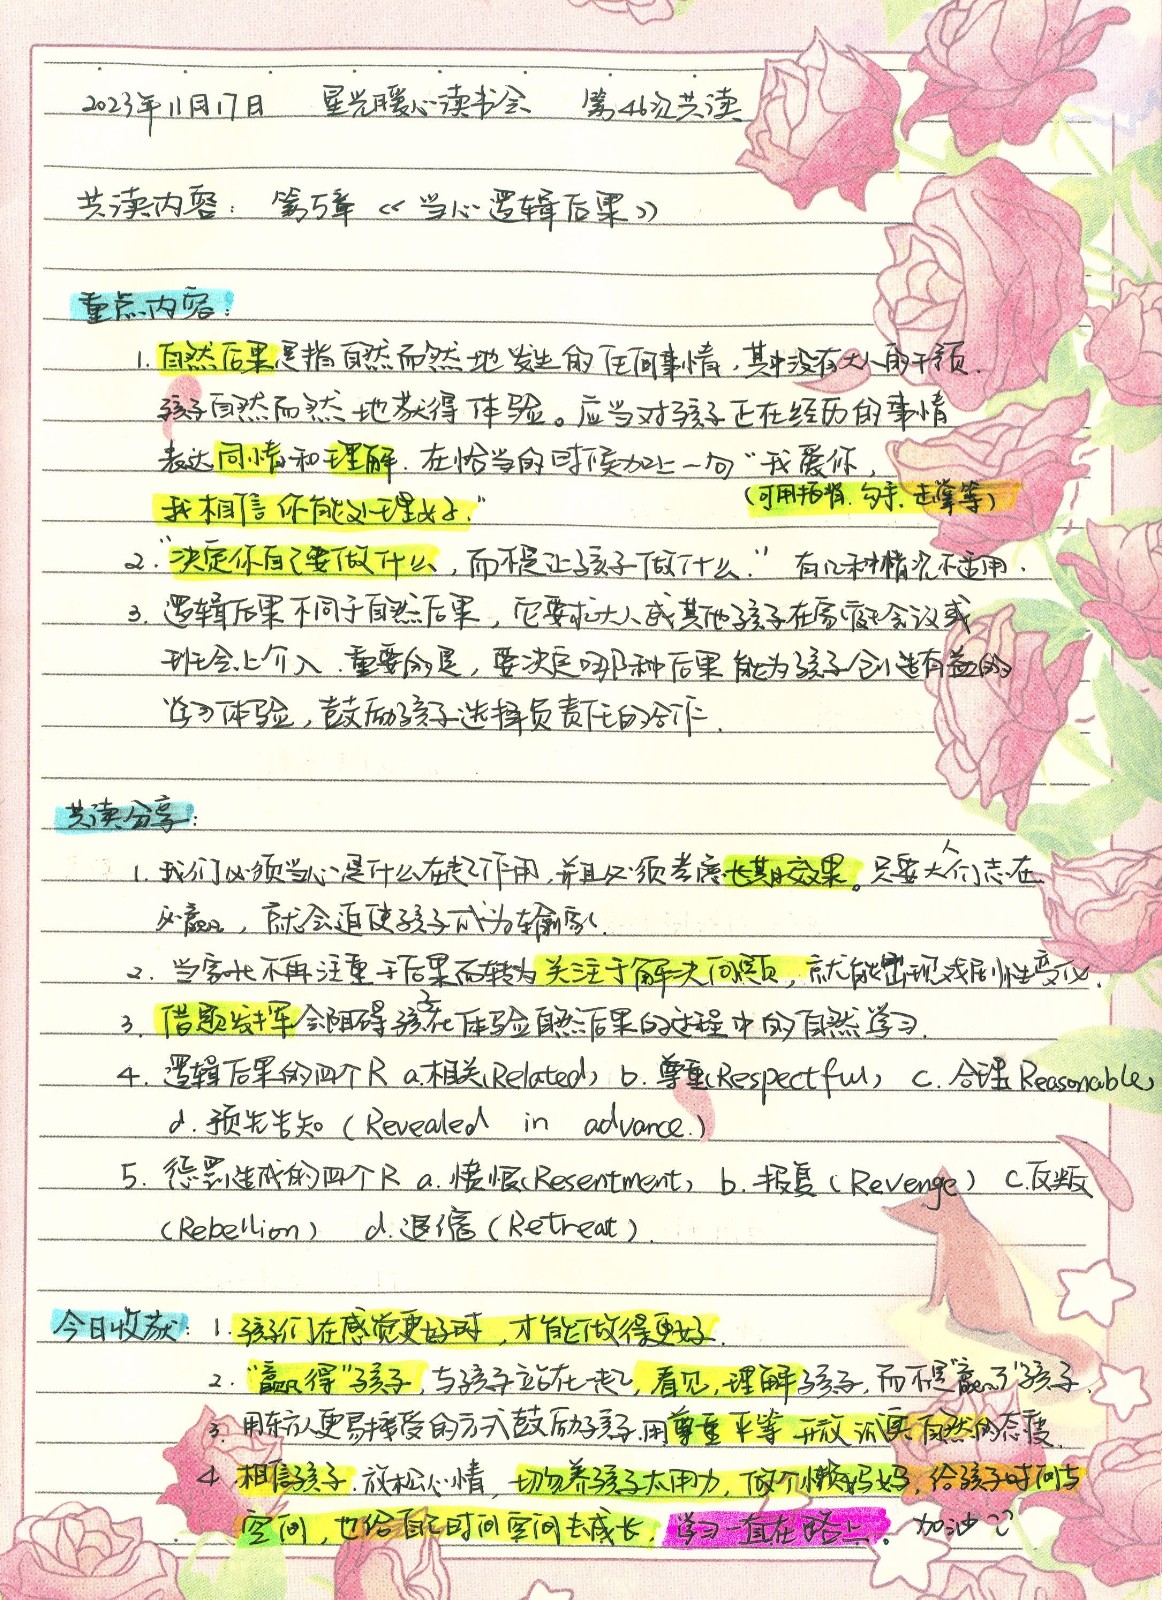 2023年11月17日 星光暖心读书会 第46次共读
共读内容：第5章《当心逻辑后果》
重点内容：
1. 自然后果是指自然而然地发生的任何事情，其中没有大人的干预.
孩子自然而然地获得体验。应当对孩子正在经历的事情
表达同情和理解. 在恰当的时候加上一句“我爱你，
我相信你能处理好.”
（可用拥抱. 勾手. 击掌等）
2. “决定你自己要做什么，而不是让孩子做什么.” 有几种情况不适用.
3. 逻辑后果不同于自然后果，它要求大人或其他孩子在家庭会议或
班会上介入. 重要的是，要决定哪种后果能为孩子创造有益的
学习体验，鼓励孩子选择负责任的合作.
共读分享：
1. 我们必须当心是什么在起作用，并且必须考虑长期效果。只要大人们志在
必赢，就会迫使孩子成为输家.
2. 当家长不再注重于后果而转为关注于解决问题，就能出现戏剧性变化.
3. 借题发挥会阻碍孩子在体验自然后果的过程中的自然学习.
4. 逻辑后果的四个R a.相关(Related) b. 尊重(Respectful) c. 合理(Reasonable)
d. 预先告知 (Revealed in advance.)
5. 惩罚造成的四个R a. 愤恨(Resentment) b. 报复(Revenge) c.反叛
(Rebellion) d.退缩(Retreat).
今日收获：1. 孩子们在感觉更好时，才能做得更好.
2. “赢得”孩子，与孩子站在一起，看见，理解孩子，而不是“赢了”孩子.
3. 用东方人更易接受的方式鼓励孩子.用尊重平等 开放 认真 自然的态度.
4. 相信孩子. 放松心情，切勿养孩子太用力，做个懒妈妈，给孩子时间与
空间，也给自己时间空间去成长. 学习一直在路上. 加油